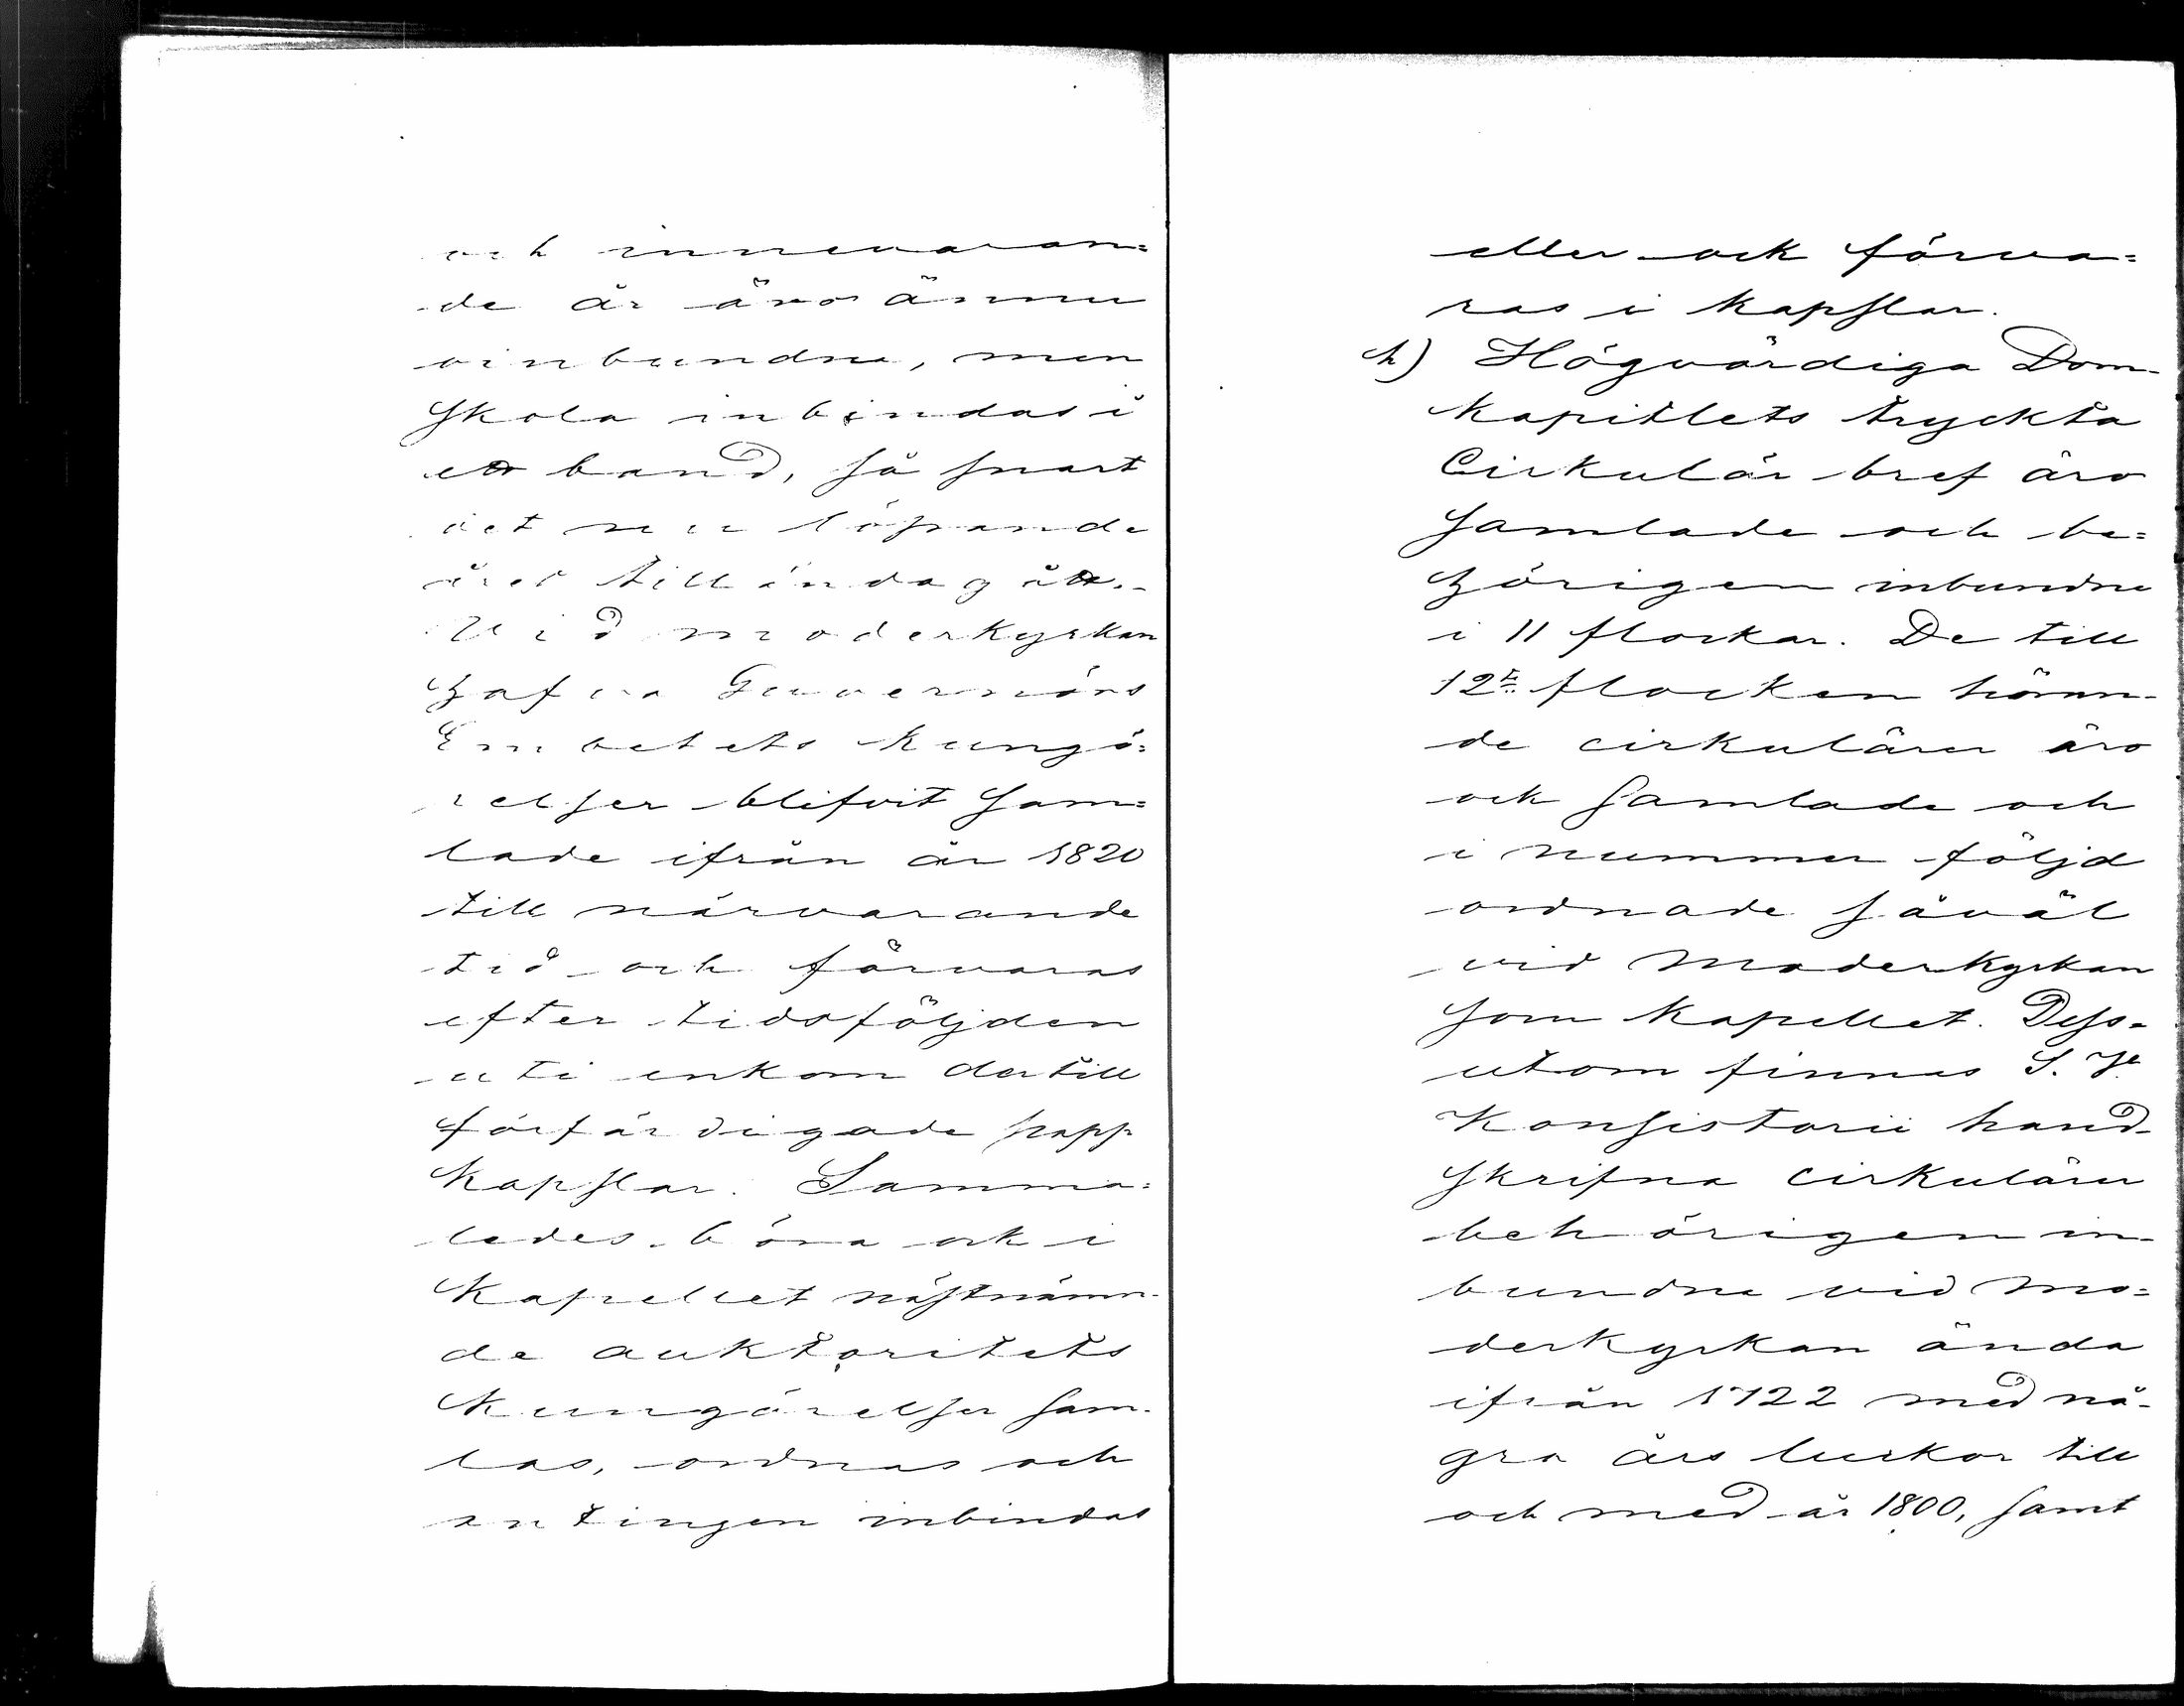 och innevaran=
de år äro ännu
oinbundna, men
skola inbindas i
ett band, så snart
det nu löpande
året tilländagått.-
Vid moderkyrkan
hafva Guvernörs
Embetets kungö=
relser blifvit sam=
lade ifrån år 1820
till närvarande
tid och förvaras
efter tidsföljden
uti enkom dertill
förfärdigade papp
kapslar. Samma=
ledes böra ock i
kapellet nästnämn-
de auktoritets
kungörelser sam-
las, ordnas och
antingen inbindas
eller ock förva=
ras i kapslar.
h) Högvördiga Dom-
kapitlets tryckta
Cirkulär bref äro
samlade och be=
hörigen inbundne
i 11 flockar. De till
12te flocken höran-
de cirkulärer äro
ock samlade och
i nummer följd
ordnade såväl
vid moderkyrkan
som kapellet. Dess-
utom finnas S. V.
Konsistorii hand-
skrifna cirkulärer
behörigen in-
bundne vid mo=
derkyrkan ända
ifrån 1722 med nå-
gra års luckor till
och med år 1800, samt